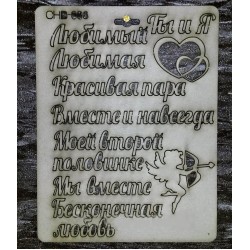 СНВ-535
Любимый Ты и Я
Любимая
Красивая пара
Вместе и навсегда
Моей второй
половинке
Мы вместе
Бесконечная
любовь